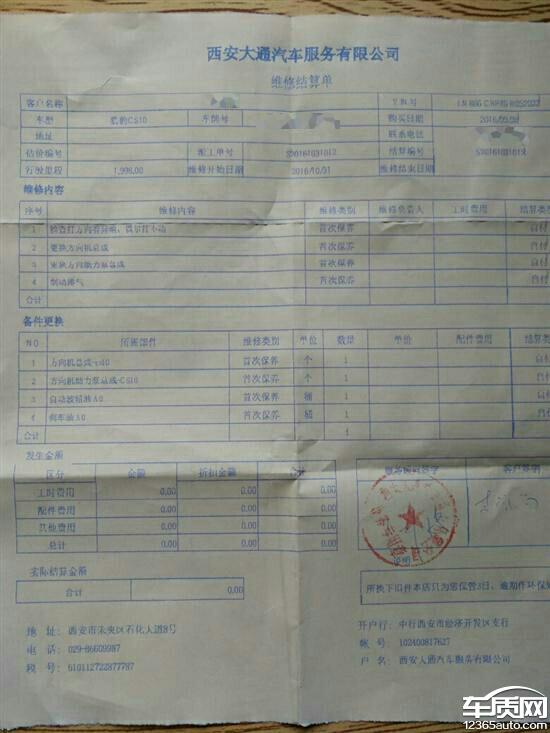 西安大通汽车服务有限公司
维修结算单
客户名称
车型 猎豹CS10 车牌号 购买日期
地址 联系电话
估价编号 派工单号 结算编号
行驶里程 1,998.00 维修开始日期 2016/10/31 维修结束日期
维修内容
序号 维修内容 维修类别 维修负责人 工时费用 结算类
1 首次保养 自付
2 更换方向机总成 首次保养 自付
3 更换方向助力泵总成 首次保养 自付
4 制动排气 首次保养 自付
合计
备件更换
NO 所换部件 维修类别 单位 数量 单价 配件费用 结算类
1 首次保养 个 1 自付
2 方向机助力泵总成-CS10 首次保养 个 1 自付
3 自动波箱油A0 首次保养 桶 1 自付
4 刹车油A0 首次保养 桶 1 自付
合计 4
发生金额
区分 金额 折扣金额 合计 客户签字
工时费用 0.00 0.00 0.00
配件费用 0.00 0.00 0.00
其他费用 0.00 0.00 0.00
总计 0.00 0.00 0.00
说明
实际结算金额
合计 0.00
所换下旧件本店只为您保管3日，逾期作环保
地 址: 西安市未央区石化大道8号 开户行: 中行西安市经济开发区支行
电 话: 029-86609987 帐 号: 102400817627
税 号: 610112722877797 户 名: 西安大通汽车服务有限公司
车质网
12365auto.com